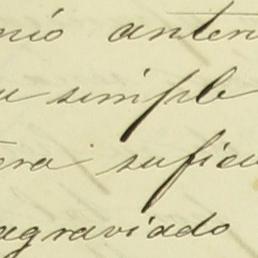 nió anten
u simple
era sufici
agraviado